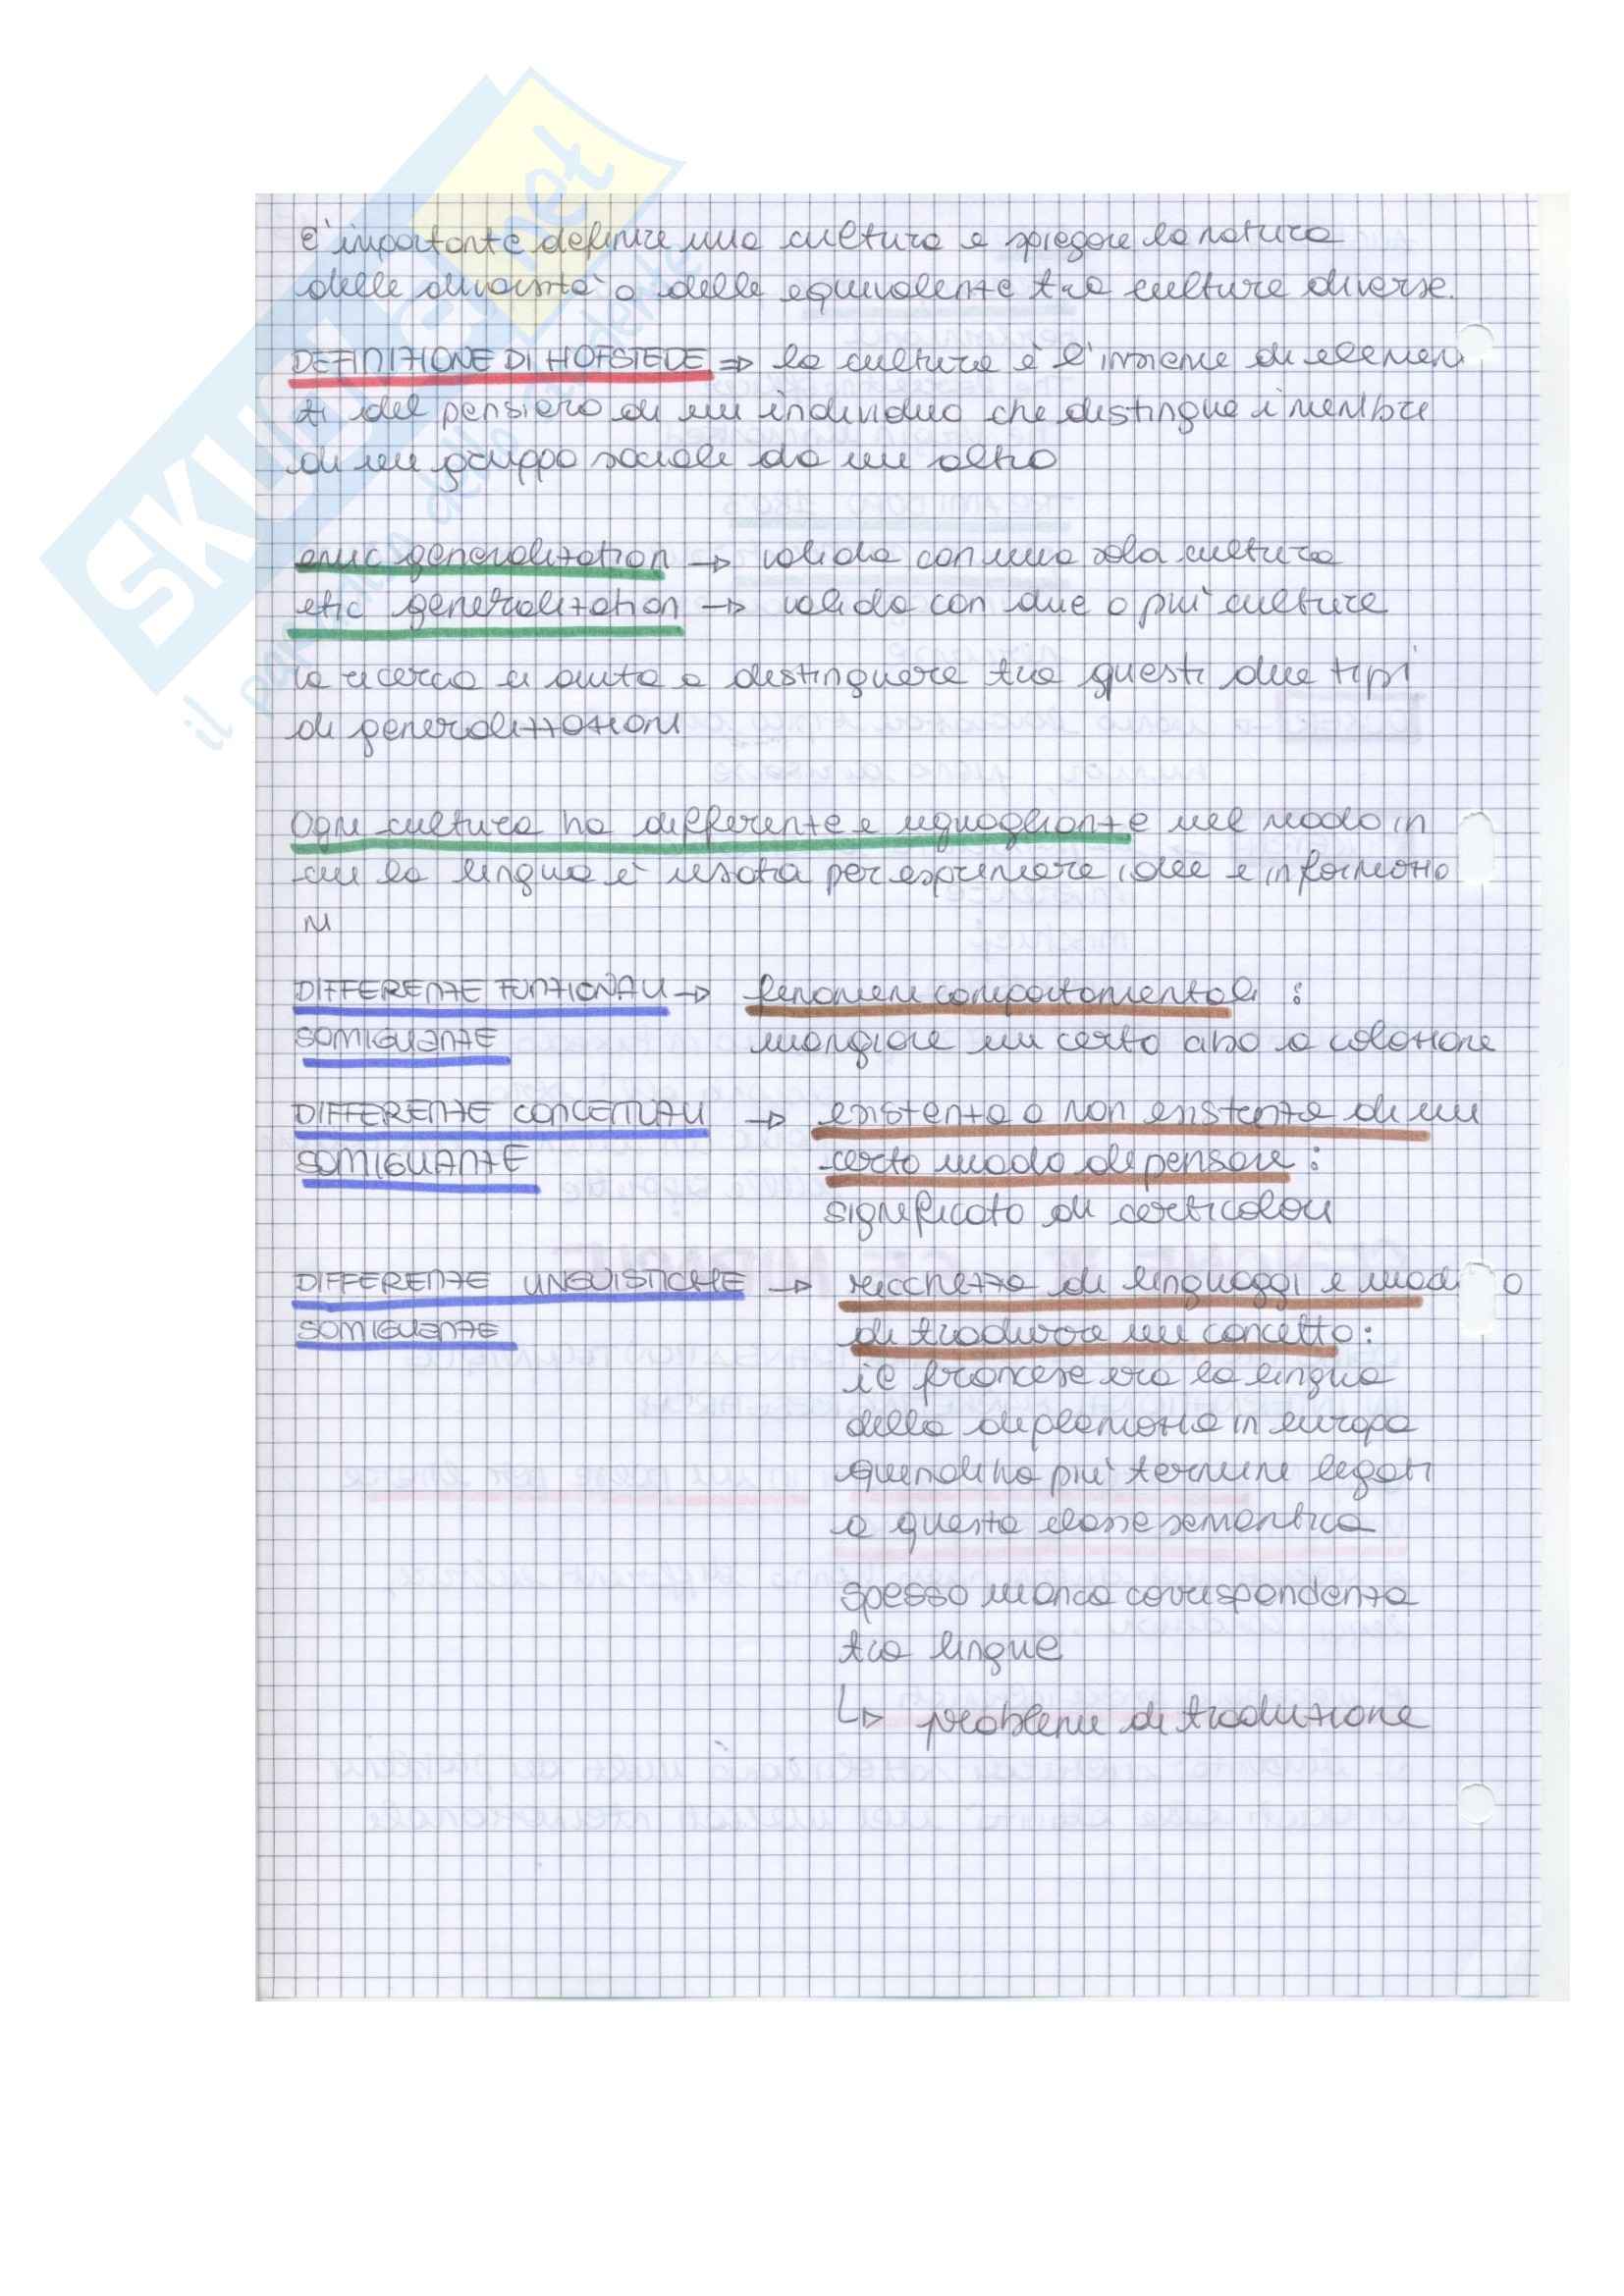 SKUOLA.net
il paradiso dello studente
E' importante definire una cultura e spiegare la natura
delle diversità o delle equivalenze tra culture diverse.
DEFINIZIONE DI HOFSTEDE ⇒ la cultura è l'insieme di elemen
ti del pensiero di un individuo che distingue i membri
di un gruppo sociale da un altro
emic generalization → valida con una sola cultura
etic generalization → valida con due o più culture
la ricerca ci aiuta a distinguere tra questi due tipi
di generalizzazioni
Ogni cultura ha differenze e uguaglianze nel modo in
cui la lingua è usata per esprimere idee e informazio
ni
DIFFERENZE FUNZIONALI → fenomeni comportamentali :
SOMIGLIANZE mangiare un certo cibo a colazione
DIFFERENZE CONCETTUALI → esistenza o non esistenza di un
SOMIGLIANZE certo modo di pensare :
significato di certi colori
DIFFERENZE LINGUISTICHE → ricchezza di linguaggi e modi o
SOMIGLIANZE di tradurre un concetto :
il francese era la lingua
della diplomazia in europa
quindi ha più termini legati
a questa classe semantica
spesso manca corrispondenza
tra lingue
↳ problemi di traduzione